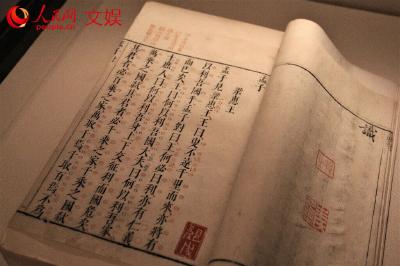 人民网·文娱
people.cn
識
孟子
梁惠王
孟子見梁惠王王曰叟不遠千里而來亦將有
以利吾國乎孟子對曰王何必曰利亦有仁義
而已矣王曰何以利吾國大夫曰何以利吾家
士庶人曰何以利吾身上下交征利而國危矣
萬乘之國弒其君者必千乘之家千乘之國弒
其君者必百乘之家萬取千焉千取百焉不為